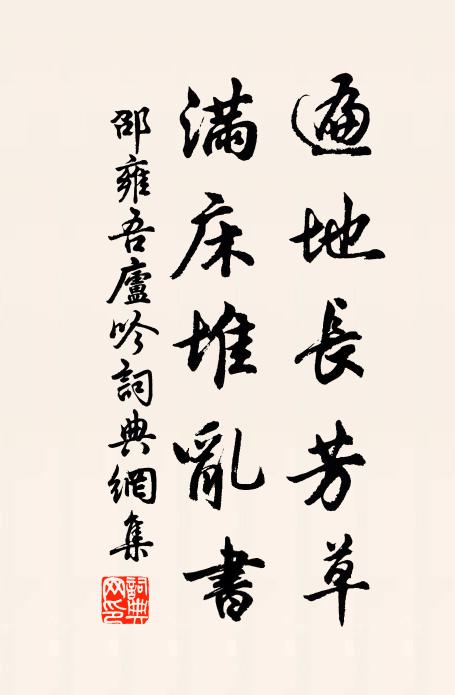 遍地長芳草
滿床堆亂書
邵雍吾廬吟詞典網集
詞典網印